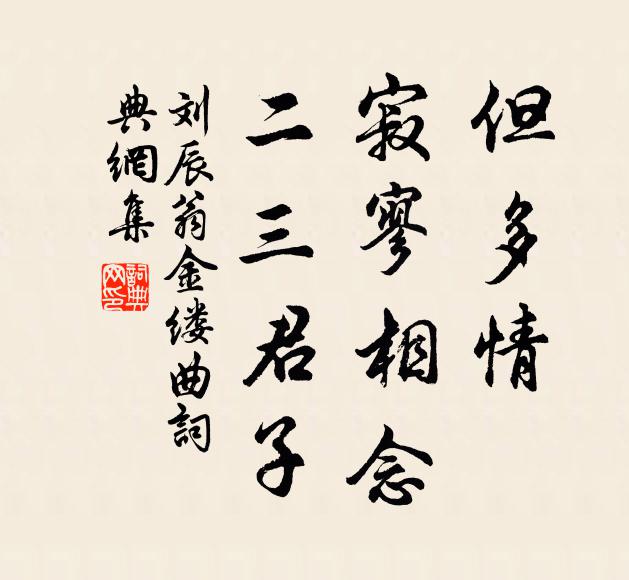 但多情
寂寥相念
二三君子
刘辰翁金缕曲詞
典網集
詞典网印